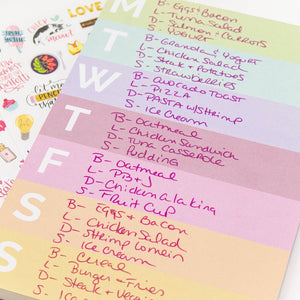 M
B- Eggs + Bacon
L- Tuna Salad
D- Salmon + Carrots
S- Yogurt
T
B- Granola + Yogurt
L- Chicken Salad
D- Steak + Potatoes
S- Strawberries
W
B- Avocado Toast
L- Pizza
D- Pasta w/ Shrimp
S- Ice Cream
T
B- Oatmeal
L- Chicken Sandwich
D- Tuna Casserole
S- Pudding
F
B- Oatmeal
L- PB+J
D- Chicken a la King
S- Fruit Cup
S
B- Eggs + Bacon
L- Chicken Salad
D- Shrimp Lo mein
S- Ice Cream
S
B- Cereal
L- Burger + Fries
D- Steak +
S- Ice
LOVE